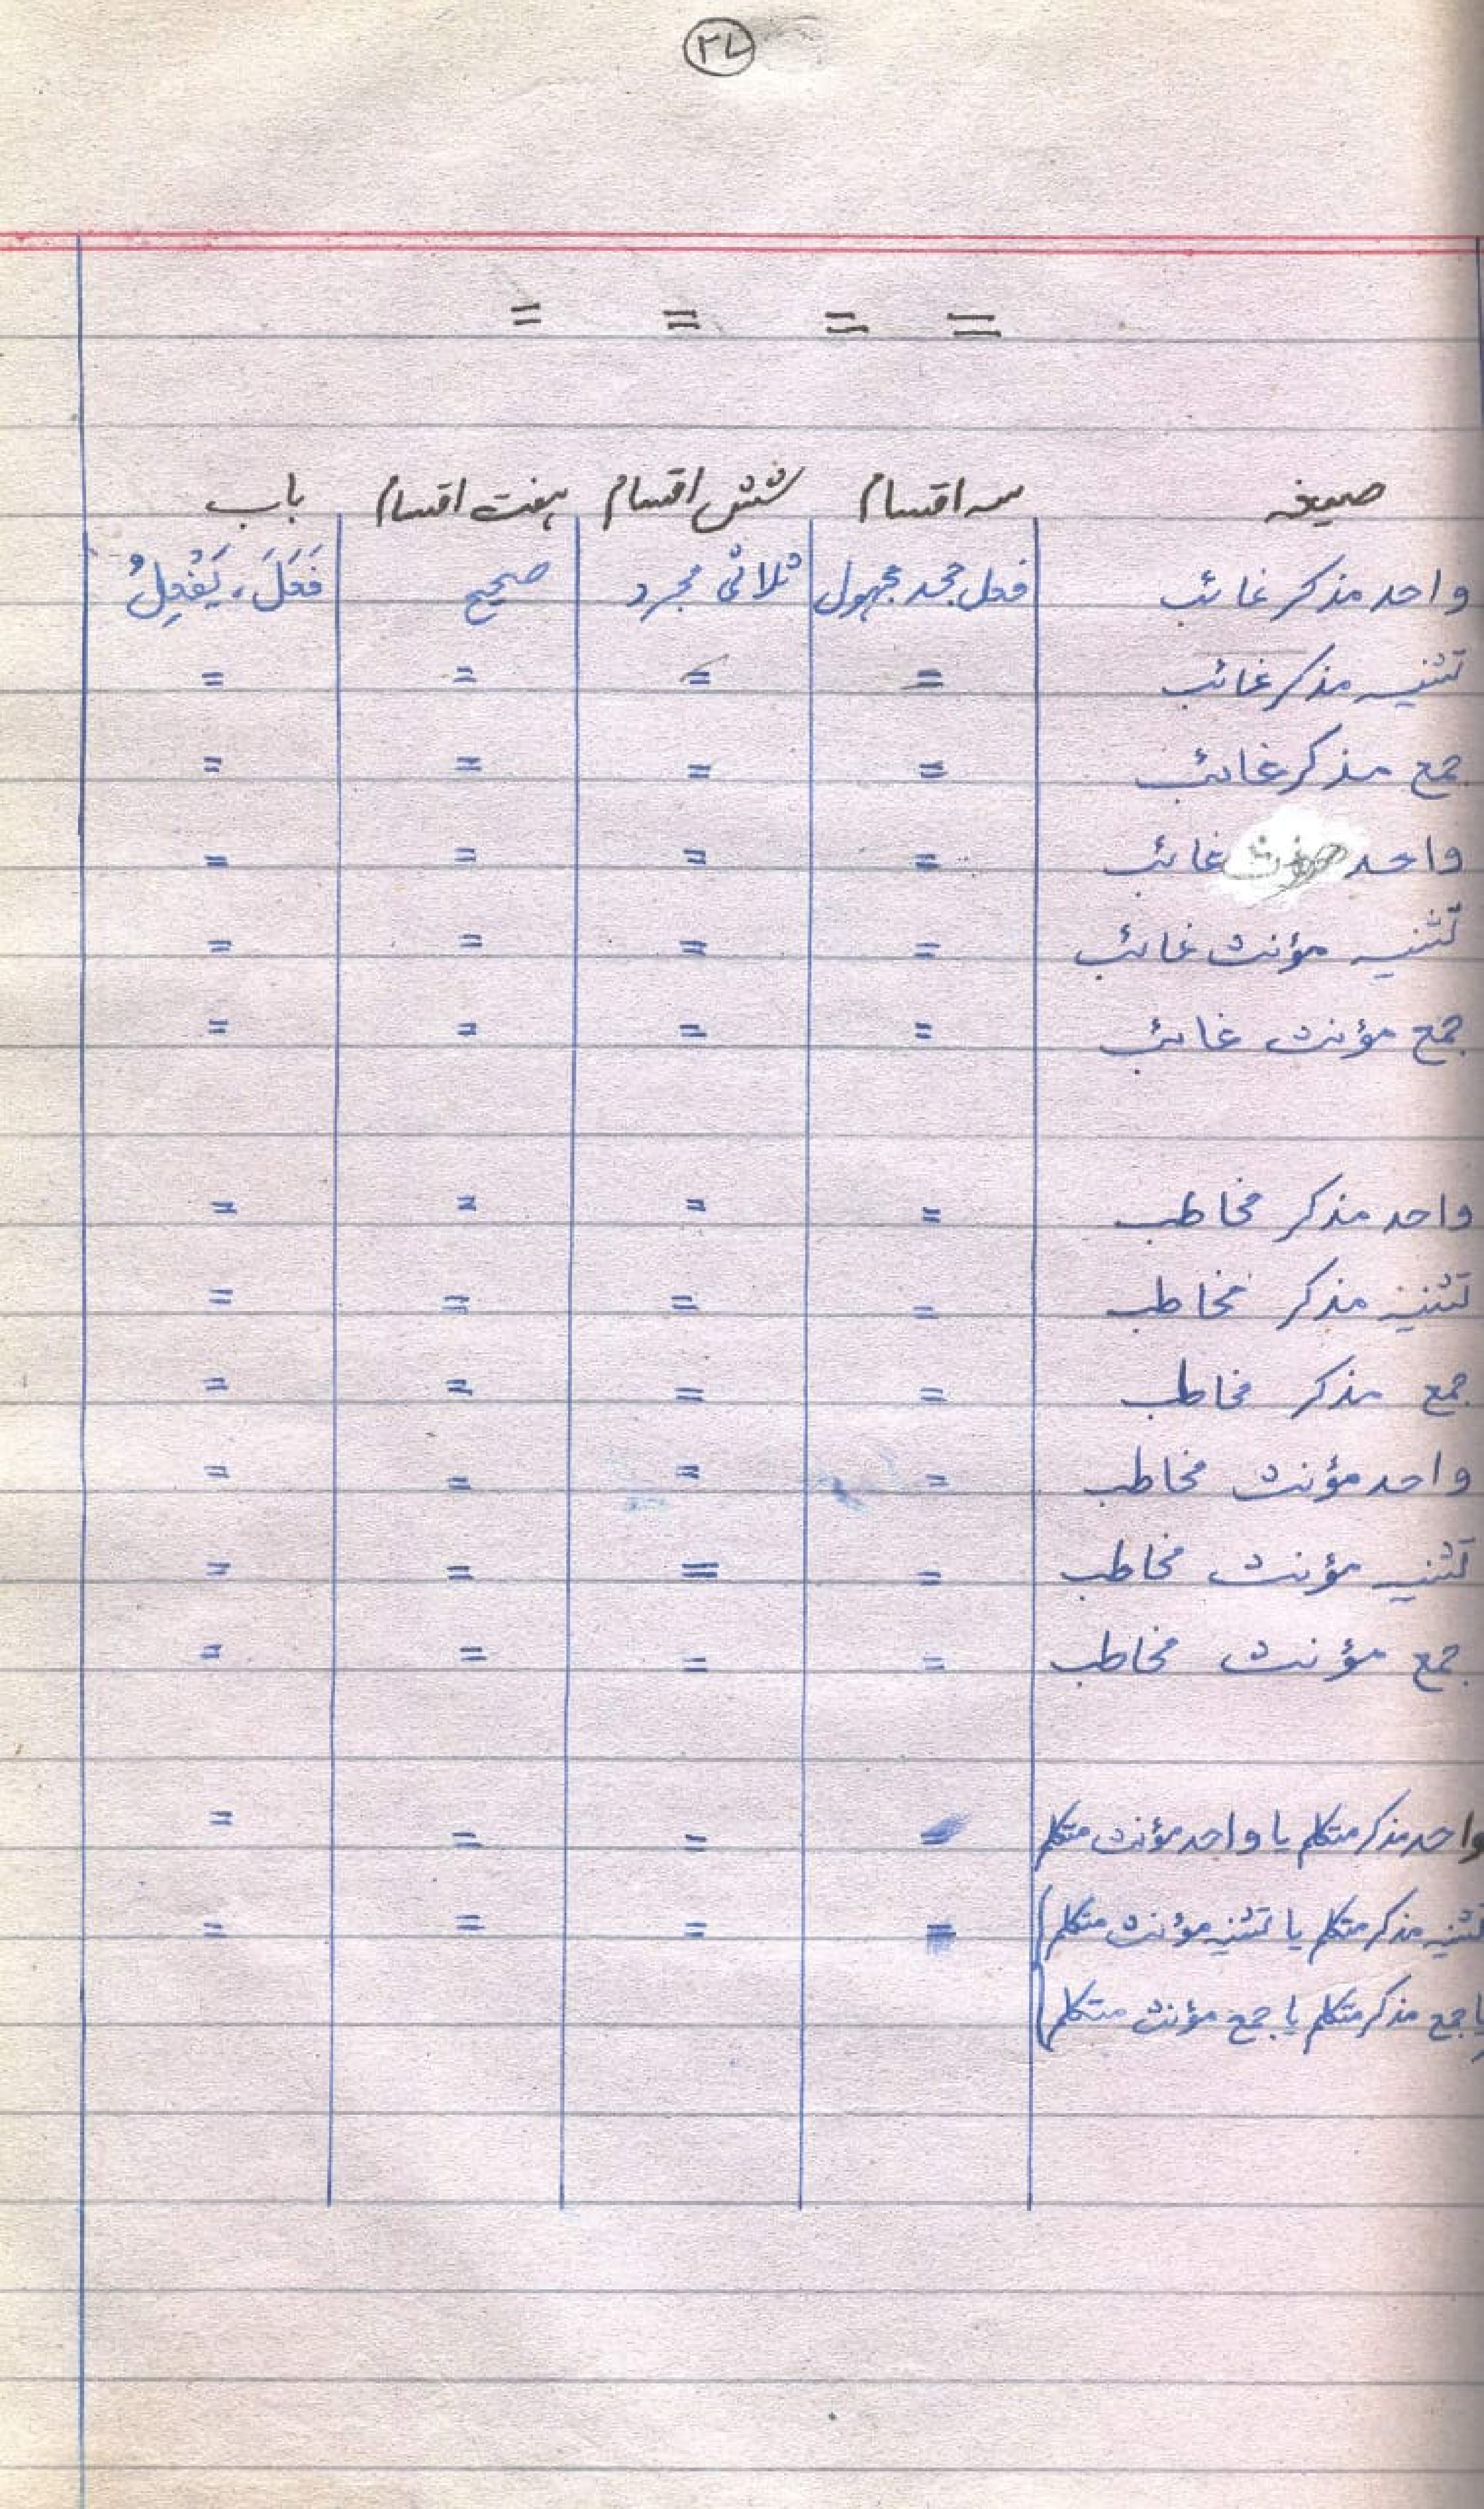 ۲۷
= = = =
صیغہ سہ اقسام شش اقسام ہفت اقسام باب
واحد مذکر غائب فعل جحد مجہول ثلاثی مجرد صحیح فَعَلَ، یَفْعِلُ
تثنیہ مذکر غائب = = = =
جمع مذکر غائب = = = =
واحد مؤنث غائب = = = =
تثنیہ مؤنث غائب = = = =
جمع مؤنث غائب = = = =
واحد مذکر مخاطب = = = =
تثنیہ مذکر مخاطب = = = =
جمع مذکر مخاطب = = = =
واحد مؤنث مخاطب = = = =
تثنیہ مؤنث مخاطب = = = =
جمع مؤنث مخاطب = = = =
واحد مذکر متکلم یا واحد مؤنث متکلم = = = =
تثنیہ مذکر متکلم یا تثنیہ مؤنث متکلم = = = =
یا جمع مذکر متکلم یا جمع مؤنث متکلم